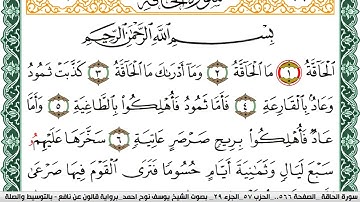 سورة الحاقة
بِسْمِ اِللَّهِ اِلرَّحْمَٰنِ اِلرَّحِيمِ
اَلْحَاقَّةُ ١ مَا اَلْحَاقَّةُ ٢ وَمَا أَدْرَىٰكَ مَا اَلْحَاقَّةُ ٣ كَذَّبَتْ ثَمُودُ
وَعَادُۢ بِالْقَارِعَةِ ٤ فَأَمَّا ثَمُودُ فَأُهْلِكُوا۟ بِالطَّاغِيَةِ ٥ وَأَمَّا
عَادٌ فَأُهْلِكُوا۟ بِرِيحٍ صَرْصَرٍ عَاتِيَةٍ ٦ سَخَّرَهَا عَلَيْهِمُۥ
سَبْعَ لَيَالٍ وَثَمَٰنِيَةَ أَيَّامٍ حُسُومًا فَتَرَى اَلْقَوْمَ فِيهَا صَرْعَىٰ
سورة الحاقة _ الصفحة ٥٦٦ _ الحزب ٥٧ _ الجزء ٢٩ _ بصوت الشيخ يوسف نوح احمد _ برواية قالون عن نافع - بالتوسيط والصلة